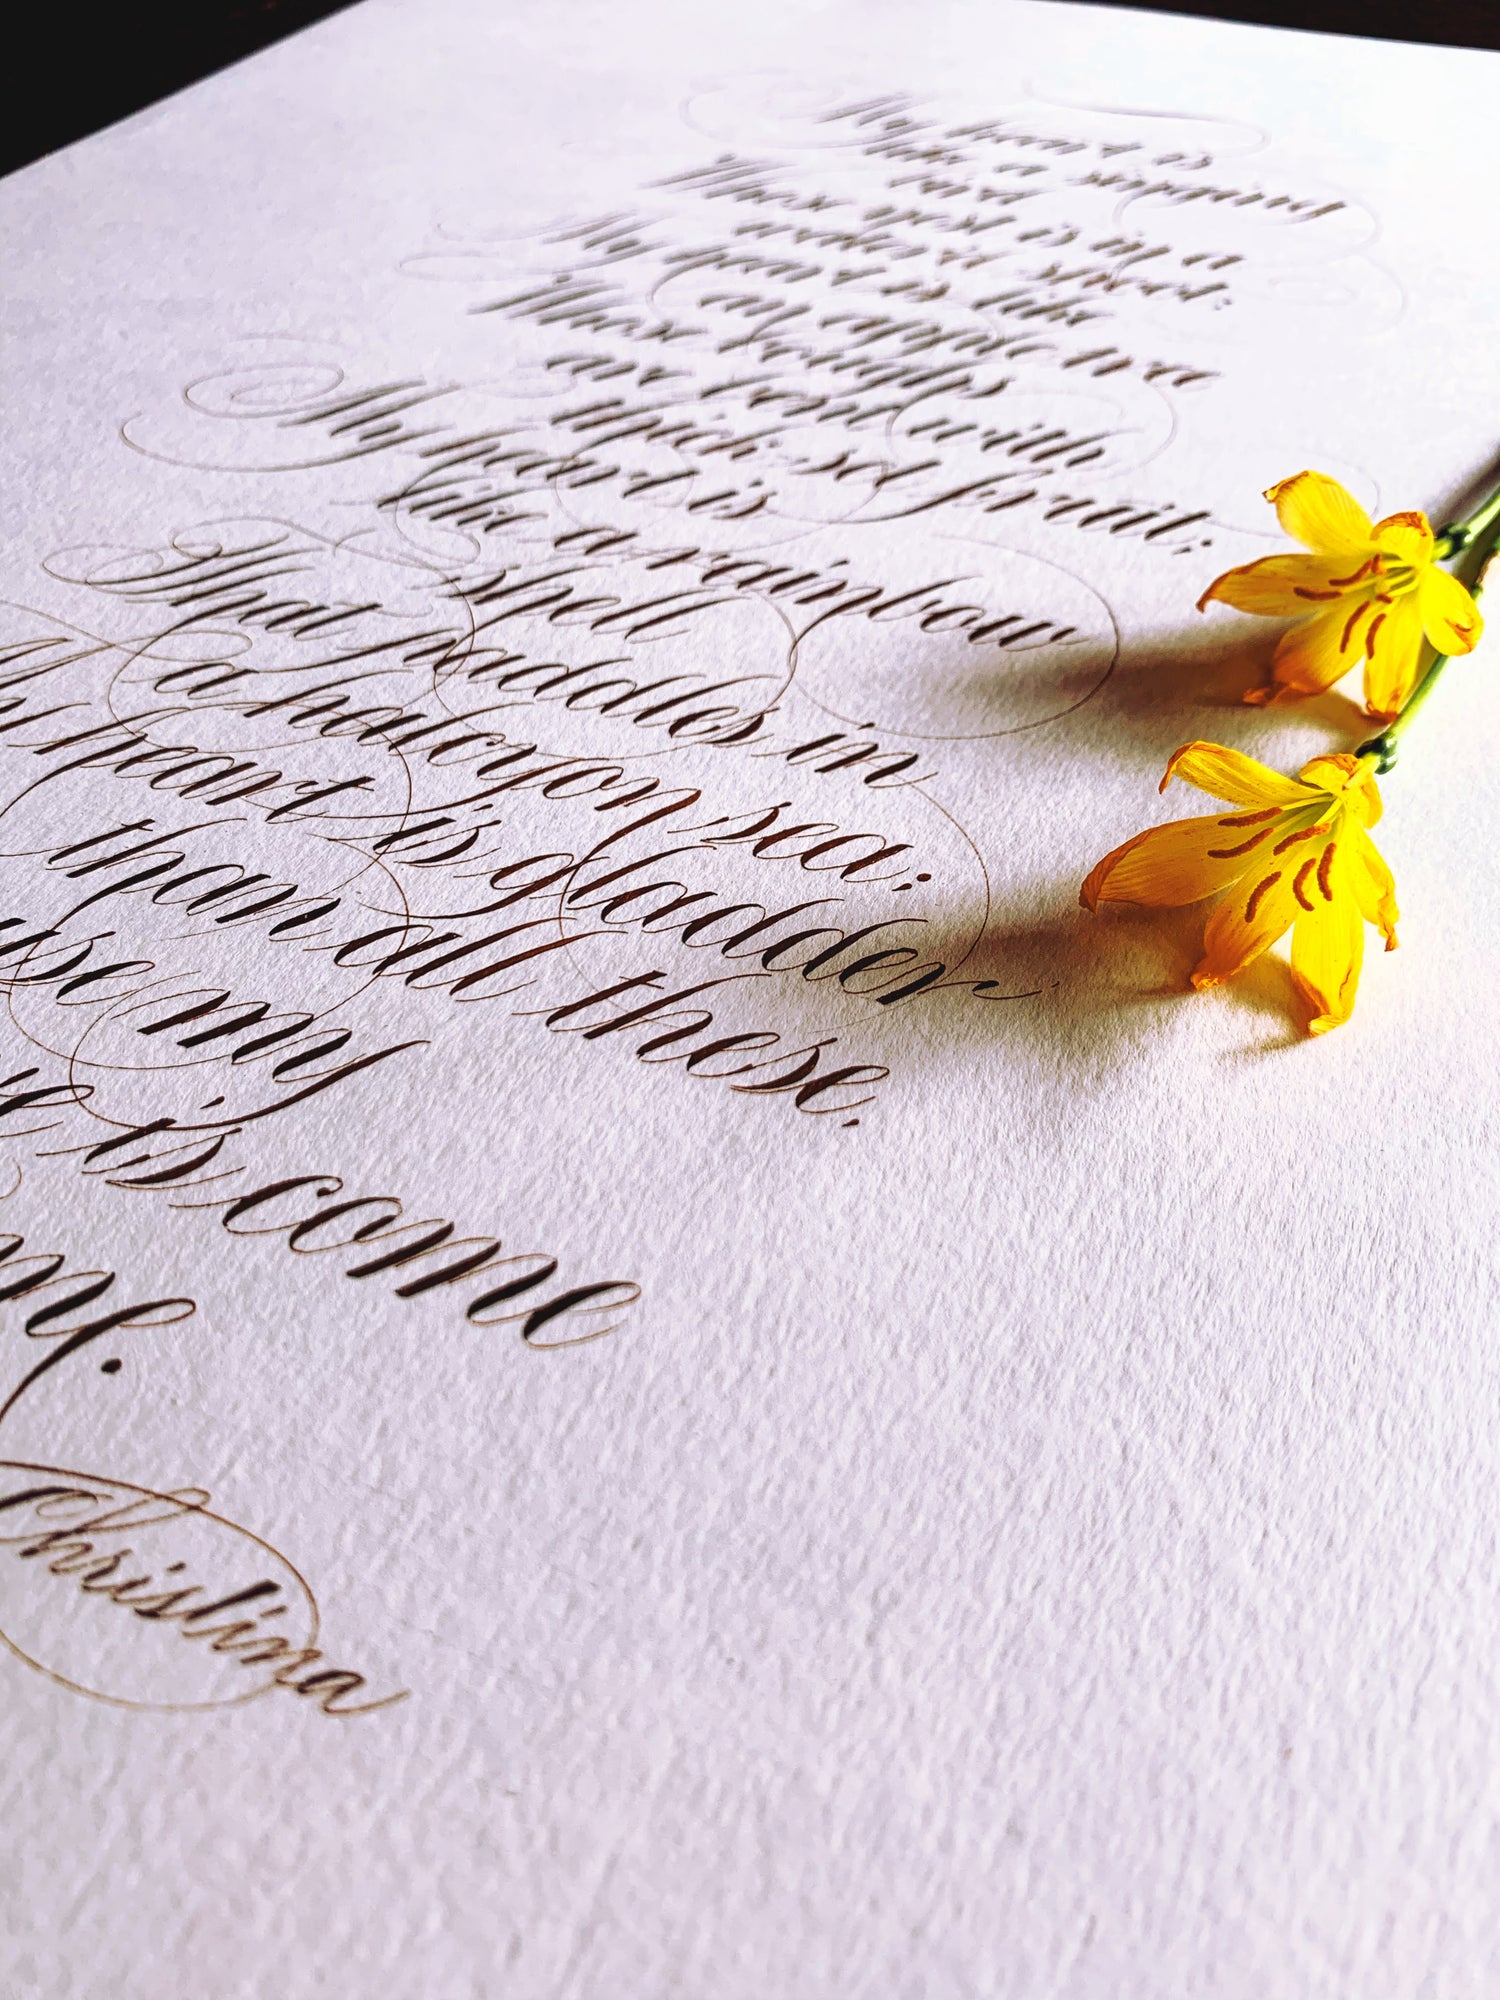 My heart is
like a singing
bird
Whose nest is in a
water'd shoot:
My heart is like
an apple tree
Whose boughs
are bent with
thick-set fruit;
My heart is
like a rainbow
shell
That paddles in
a halcyon sea;
My heart is gladder
than all these,
use my
is come
me.
Christina